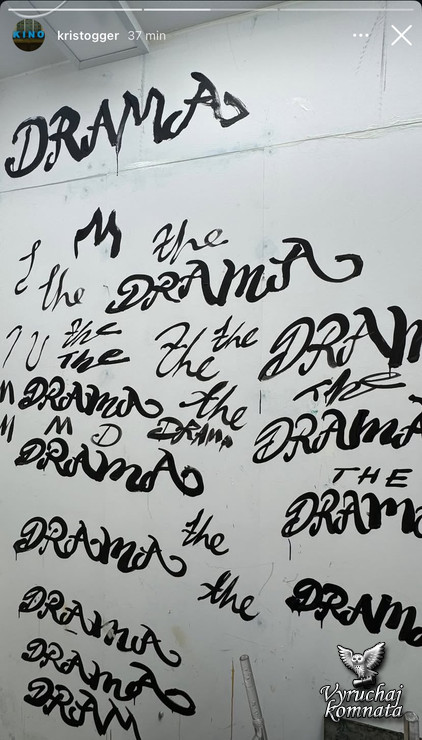 KINO
kristogger 37 min
DRAMA
M the
the DRAMA
the the
THE the DRAM
THE
M DRAMA the
M M D DRAMA DRAMA
DRAMA
THE
DRAMA
DRAMA the
the DRAMA
DRAMA
DRAMA
DRAM
Vyruchaj
komnata